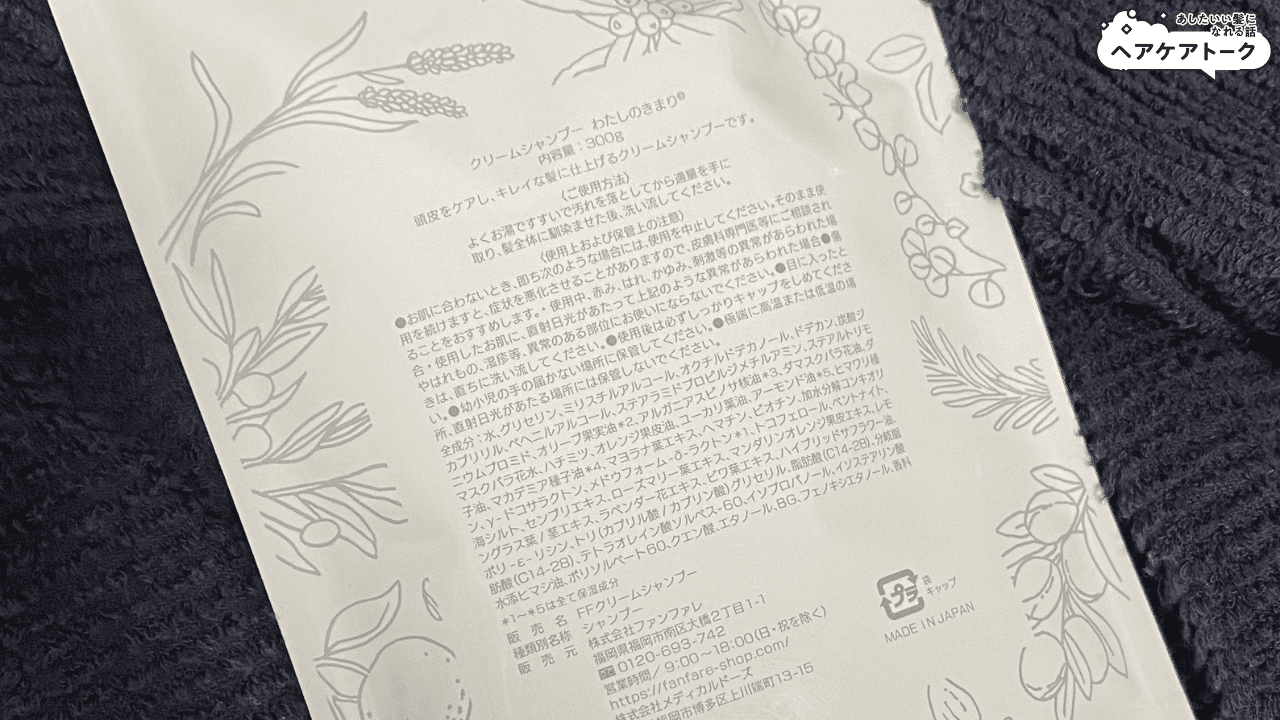 あしたいい髪に
なれる話
ヘアケアトーク
クリームシャンプー わたしのきまり®
内容量：300g
頭皮をケアし、キレイな髪に仕上げるクリームシャンプーです。
〈ご使用方法〉
よくお湯ですすいで汚れを落としてから適量を手に
取り、髪全体に馴染ませた後、洗い流してください。
〈使用上および保管上の注意〉
●お肌に合わないとき、即ち次のような場合には、使用を中止してください。そのまま使
用を続けますと、症状を悪化させることがありますので、皮膚科専門医等にご相談され
ることをおすすめします。・使用中、赤み、はれ、かゆみ、刺激等の異常があらわれた場
合・使用したお肌に、直射日光があたって上記のような異常があらわれた場合●傷
やはれもの、湿疹等、異常のある部位にお使いにならないでください。●目に入ったと
きは、直ちに洗い流してください。●使用後は必ずしっかりキャップをしめてくださ
い。●幼小児の手の届かない場所に保管してください。●極端に高温または低温の場
所、直射日光があたる場所には保管しないでください。
全成分：水、グリセリン、ミリスチルアルコール、オクチルドデカノール、ドデカン、炭酸ジ
カプリリル、ベヘニルアルコール、ステアラミドプロピルジメチルアミン、ステアルトリモ
ニウムブロミド、オリーブ果実油*2、アルガニアスピノサ核油*3、ダマスクバラ花油、ダ
マスクバラ花水、ハチミツ、オレンジ果皮油、ユーカリ葉油、アーモンド油*5、ヒマワリ種
子油、マカデミア種子油*4、マヨラナ葉エキス、ヘマチン、ビオチン、加水分解コンキオリ
ン、γ-ドコサラクトン、メドウフォーム-δ-ラクトン*1、トコフェロール、ベントナイト、
海シルト、センブリエキス、ローズマリー葉エキス、マンダリンオレンジ果皮エキス、レモ
ングラス葉/茎エキス、ラベンダー花エキス、ビワ葉エキス、ハイブリッドサフラワー油、
ポリ-ε-リシン、トリ(カプリル酸/カプリン酸)グリセリル、脂肪酸(C14-28)、分岐脂
肪酸(C14-28)、テトラオレイン酸ソルベス-60、イソプロパノール、イソステアリン酸
水添ヒマシ油、ポリソルベート60、クエン酸、エタノール、BG、フェノキシエタノール、香料
*1～*5は全て保湿成分
販売名 FFクリームシャンプー
種類別名称 シャンプー
販売元 株式会社ファンファレ
福岡県福岡市南区大橋2丁目1-1
0120-693-742
営業時間/9:00～18:00(日・祝を除く)
https://fanfare-shop.com/
株式会社メディカルドーズ
福岡市博多区上川端町13-15
プラ
袋
キャップ
MADE IN JAPAN